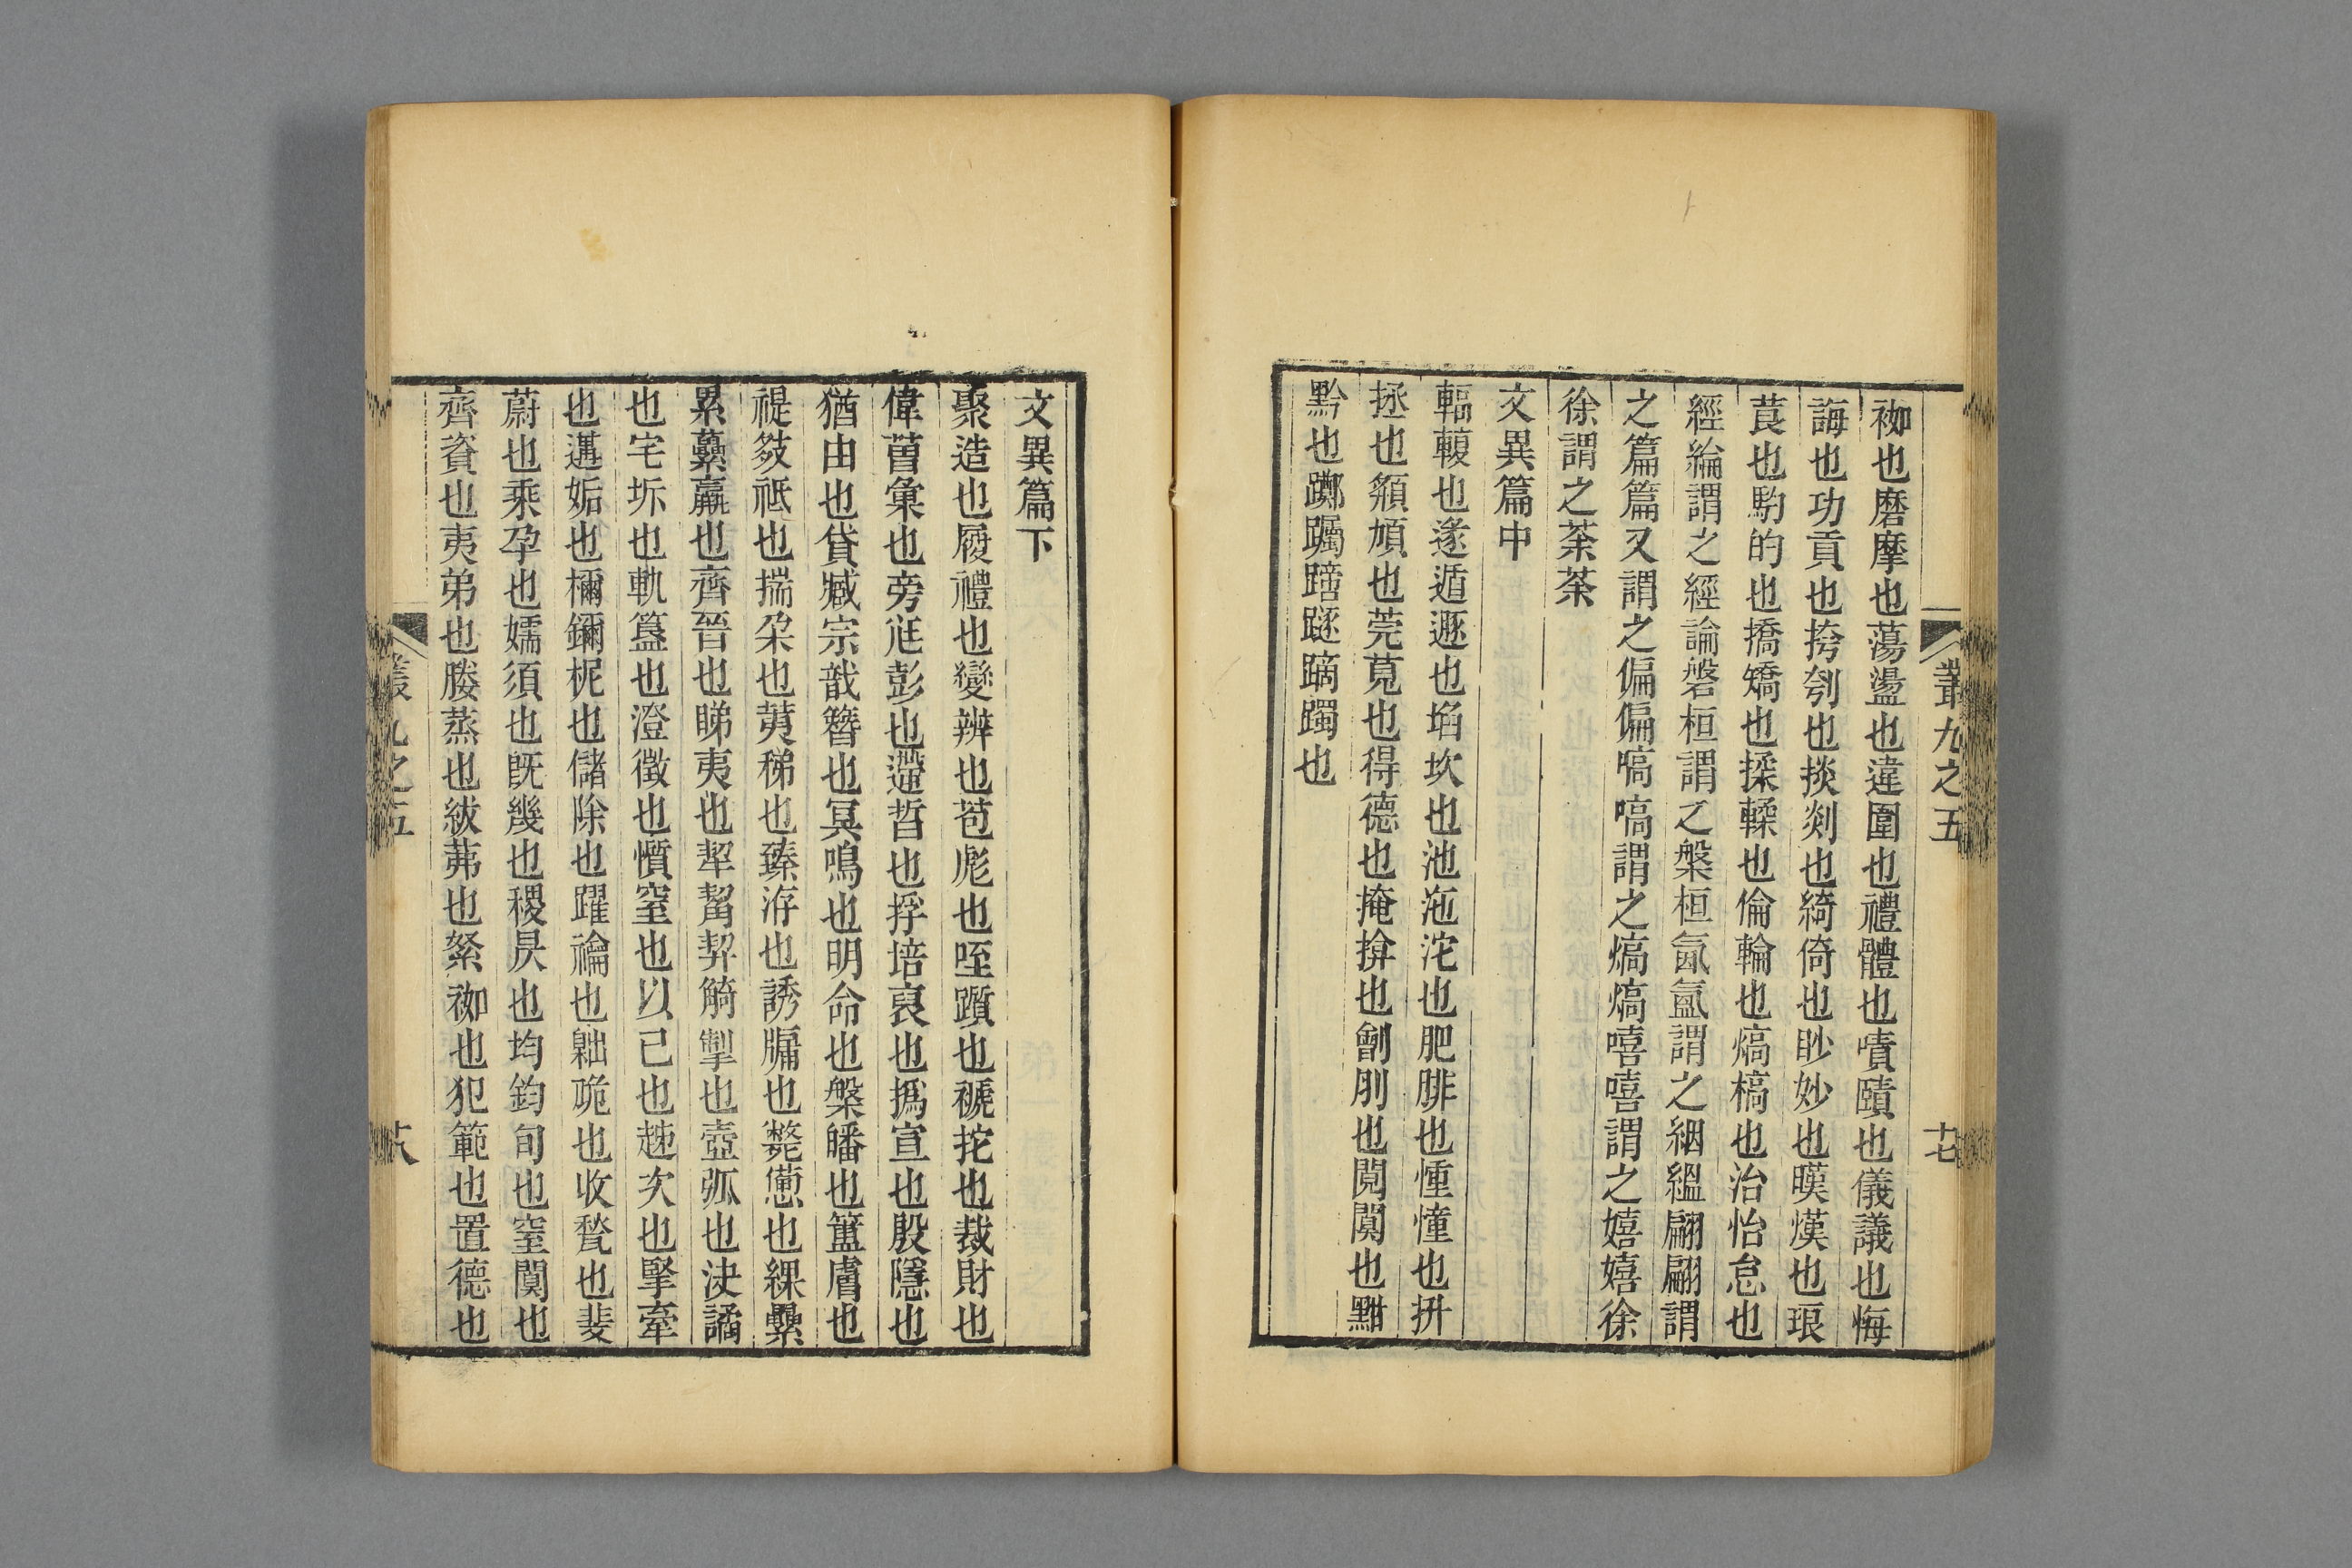 袽也磨摩也蕩盪也違圍也禮體也嘖賾也儀議也悔
誨也功貢也挎刳也掞剡也綺倚也眇妙也暵熯也琅
莨也馰的也撟矯也揉輮也倫輪也熇槁也治怡怠也
經綸謂之經論磐桓謂之槃桓氤氳謂之絪縕翩翩謂
之篇篇又謂之偏偏嗃嗃謂之熇熇嘻嘻謂之嬉嬉徐
徐謂之荼荼
文異篇中
輻輹也遂遁遯也埳坎也池沲沱也肥腓也憧憧也抍
拯也頯頄也莞莧也得德也掩揜也劊刖也閲闃也黚
黔也躑躅蹢躅也
叢九之五
十七
文異篇下
聚造也履禮也變辨也苞彪也咥躓也褫拕也裁財也
偉曹彙也旁尫彭也遰晢也捊培裒也撝宣也殷隱也
猶由也貸臧宗戠簪也冥鳴也明命也槃皤也簠膚也
禔𥿊祗也揣朵也荑稊也臻洊也誘牖也斃憊也纙纍
累虆羸也齊晉也睇夷也犂觢挈觭掣也壺弧也決譎
也宅坼也軌簋也澄徵也懫窒也以已也趀次也掔牽
也遘姤也檷鑈柅也儲除也躍禴也臲䂽也收甃也斐
蔚也乘孕也嬬須也旣幾也稷昃也均鈞旬也窒闃也
齊資也夷弟也媵蒸也紱茀也絮袽也犯範也置德也
叢九之五
十八